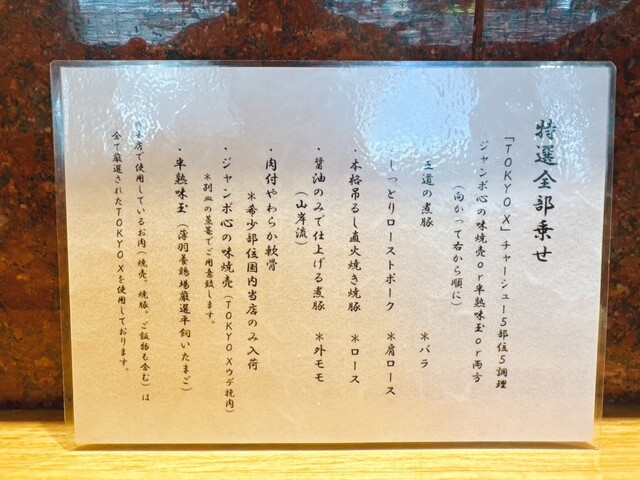 特選全部乗せ
「TOKYO X」チャーシュー5部位5調理
ジャンボ心の味焼売or半熟味玉or両方
(向かって右から順に)
王道の煮豚　＊バラ
しっとりローストポーク　＊肩ロース
・本格吊るし直火焼き焼豚　＊ロース
・醤油のみで仕上げる煮豚　＊外モモ
(山岸流)
・肉付やわらか軟骨
＊希少部位国内当店のみ入荷
・ジャンボ心の味焼売(TOKYO Xウデ挽肉)
＊別皿の蒸篭でご用意致します。
・半熟味玉(薄羽養鶏場厳選平飼いたまご)
本店で使用しているお肉(焼売、焼豚、ご飯物も含む)は
全て厳選されたTOKYO Xを使用しております。